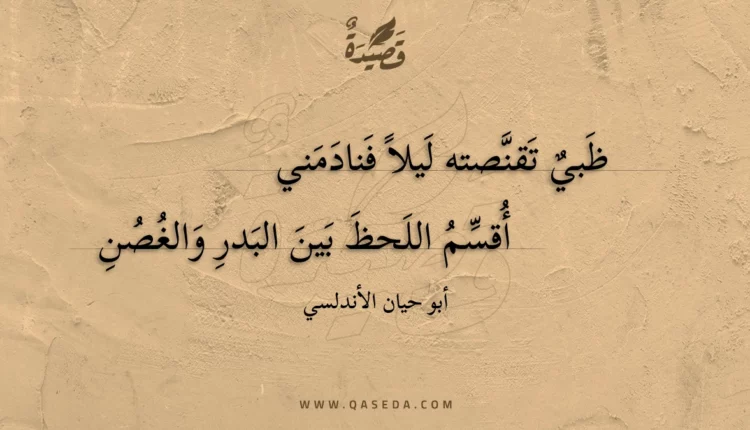 قَصِيْدَةٌ
ظَبيٌ تَقنَّصته لَيلاً فَنادَمَني
أُقسِّمُ اللَحظَ بَينَ البَدرِ وَالغُصُنِ
أبو حيان الأندلسي
WWW.QASEDA.COM